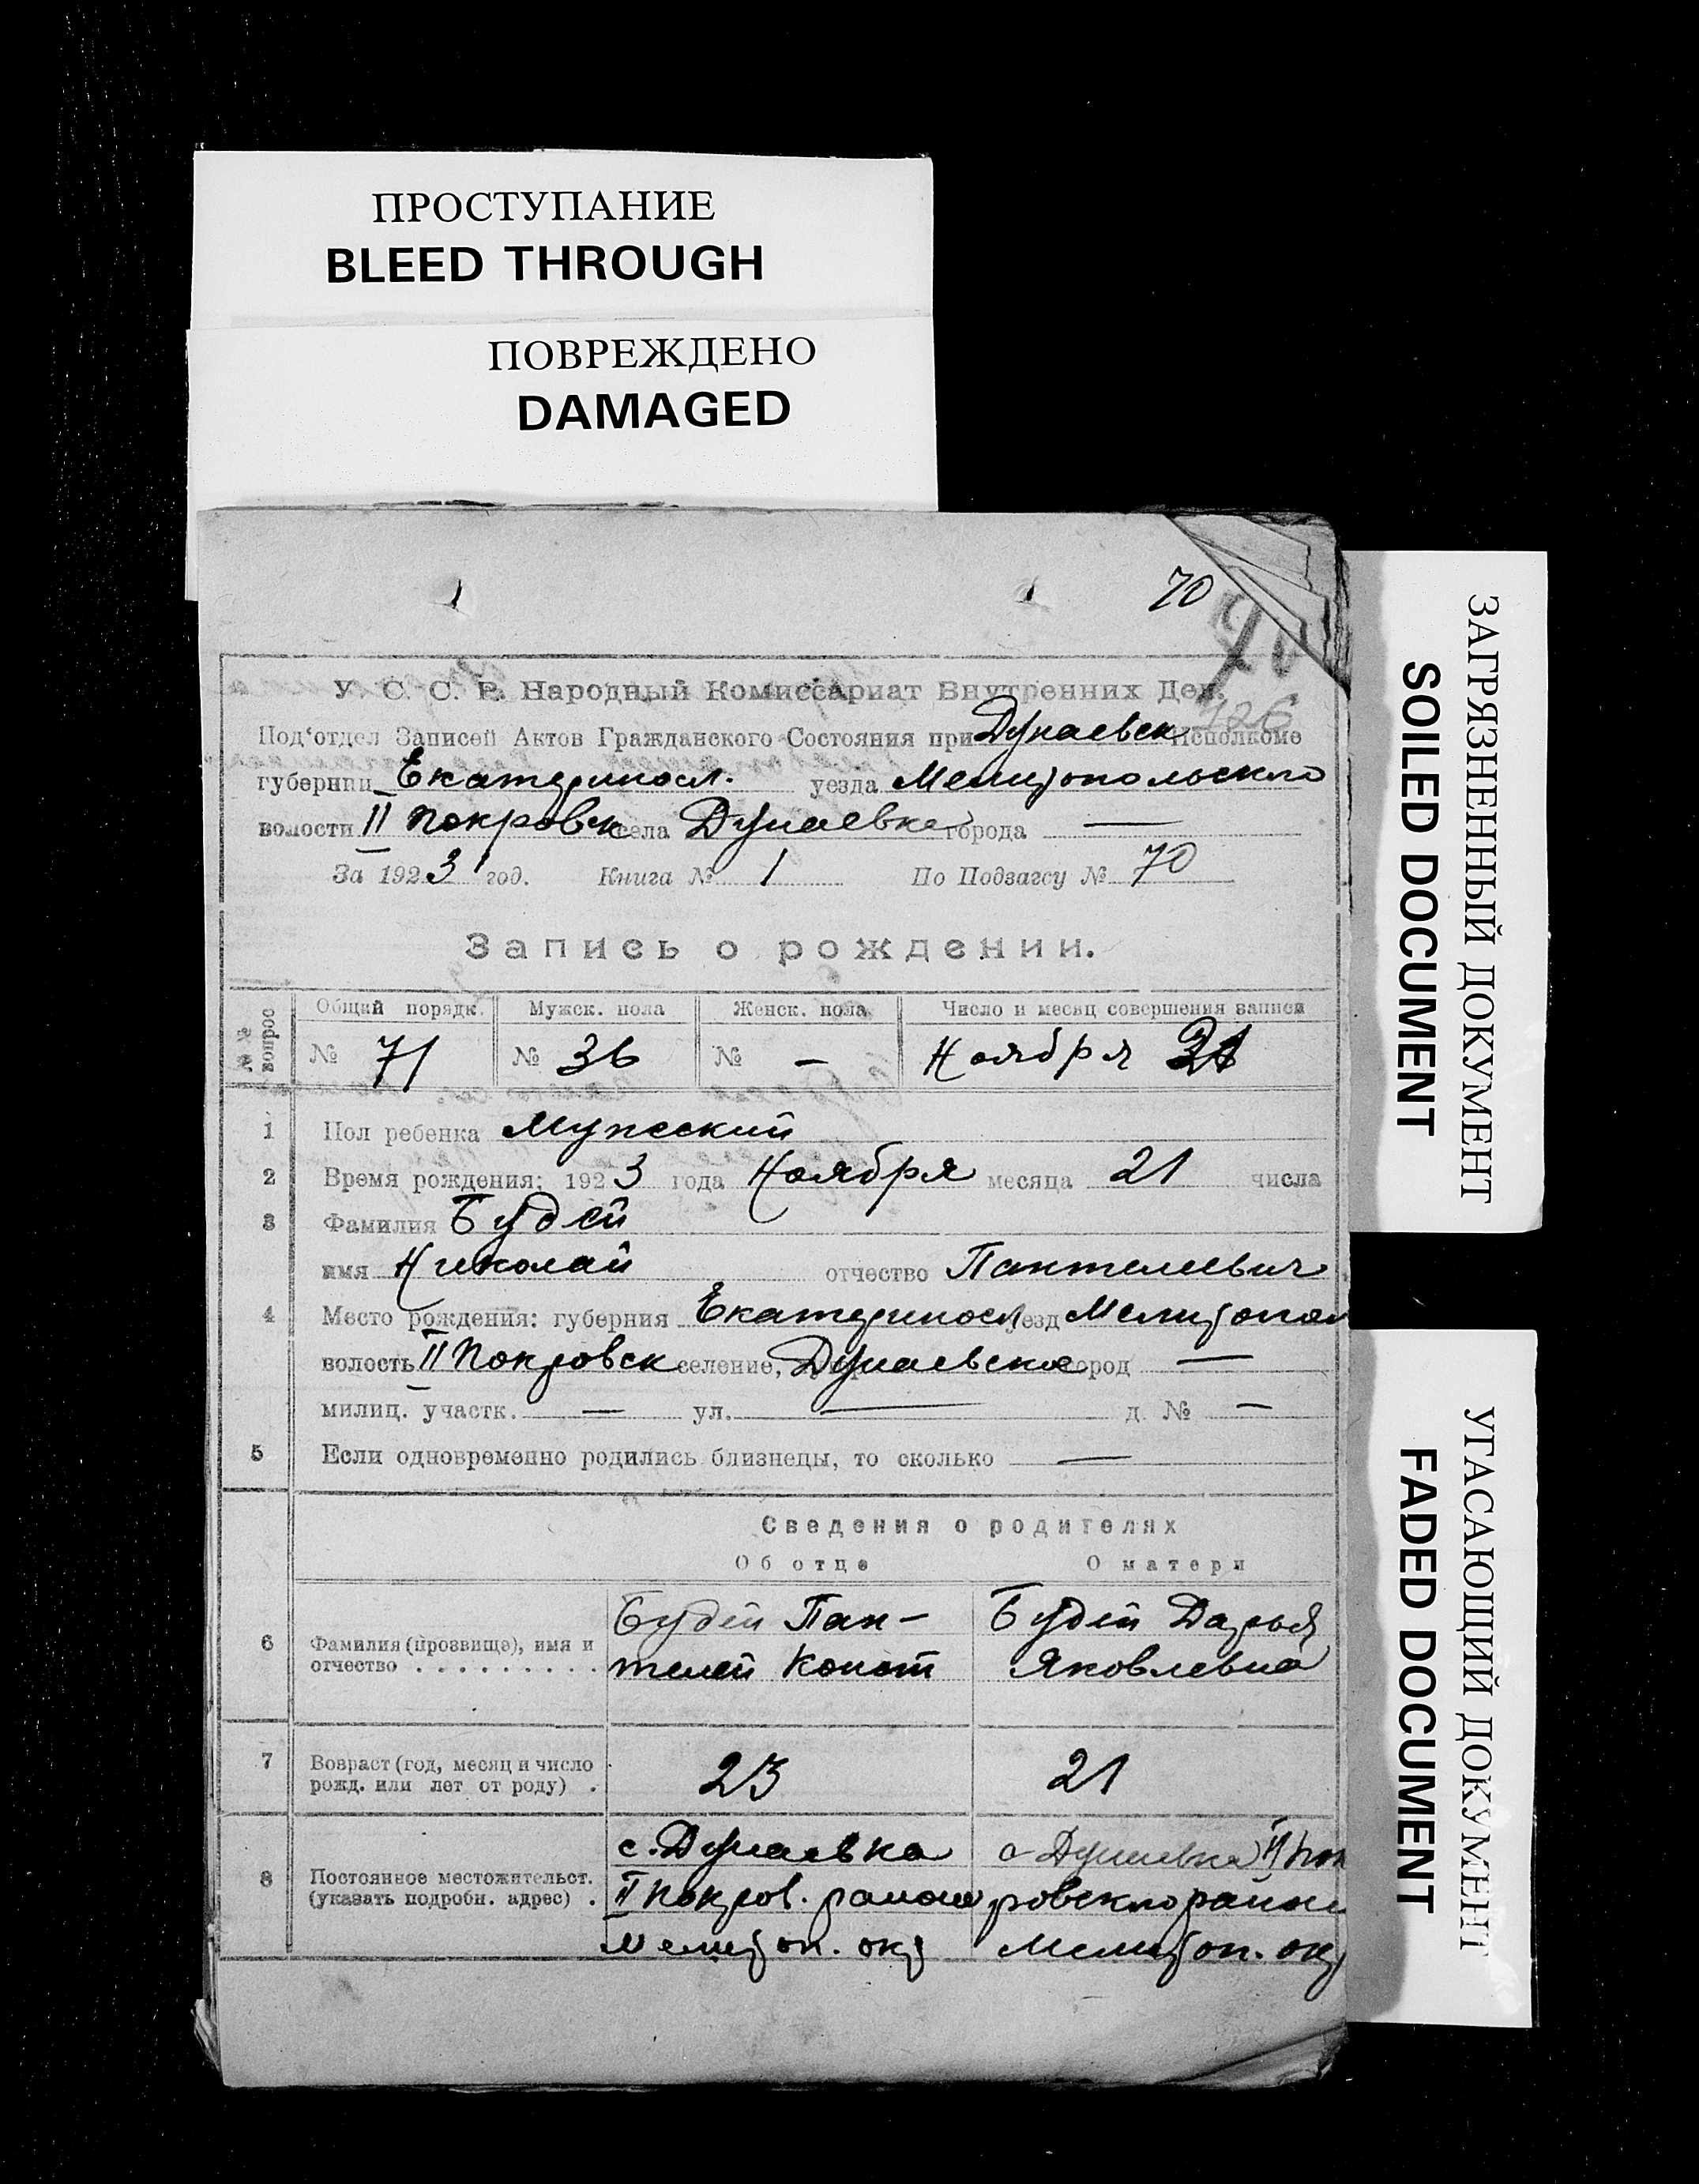 ПРОСТУПАНИЕ
BLEED THROUGH
ПОВРЕЖДЕНО
DAMAGED
70
70
126
У. С. С. Р. Народный Комиссариат Внутренних Дел.
Под‘отдел Записей Актов Гражданского Состояния при Дунаевск Исполкоме
губернии Екатериносл. уезда Мелитопольского
волости II Покровск села Дунаевка города —
За 1923 год. Книга № 1 По Подзагсу № 70
Запись о рождении.
№№ вопрос
Общий порядк. Мужск. пола Женск. пола Число и месяц совершения записи
№ 71 № 36 № — Ноября
1 Пол ребенка Мужеский
2 Время рождения: 1923 года Ноября месяца 21 числа
3 Фамилия Будей
имя Николай отчество Пантелеевич
4 Место рождения: губерния Екатериносл уезд Мелитопол
волость II Покровск селение, Дунаевское город —
милиц. участк. — ул. — д. № —
5 Если одновременно родились близнецы, то сколько —
Сведения о родителях
Об отце О матери
Будей Пан- Будей Дарья
6 Фамилия (прозвище), имя и
отчество . . . . . . . . . телей Конст Яковлевна
7 Возраст (год, месяц и число
рожд. или лет от роду) . 23 21
с. Дунаевка с Дунаевка II Пок
8 Постоянное местожительст.
(указать подробн. адрес) . II Покров. района ровского район
Мелитоп. окр Мелитоп. окр
ЗАГРЯЗНЕННЫЙ ДОКУМЕНТ
SOILED DOCUMENT
УГАСАЮЩИЙ ДОКУМЕНТ
FADED DOCUMENT